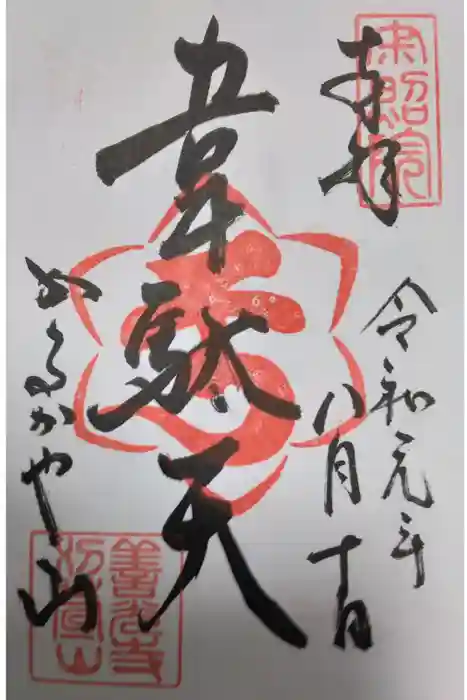 奉拝
令和元年
八月十日
韋駄天
かるかや山
善光寺